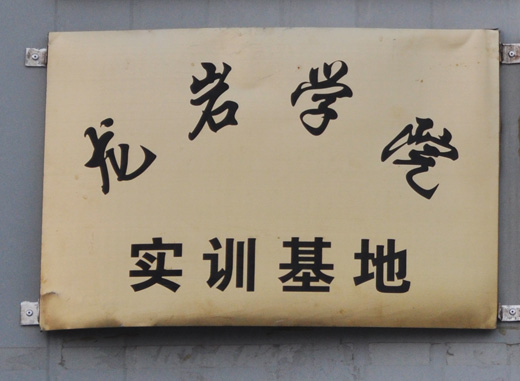 龙岩学院
实训基地